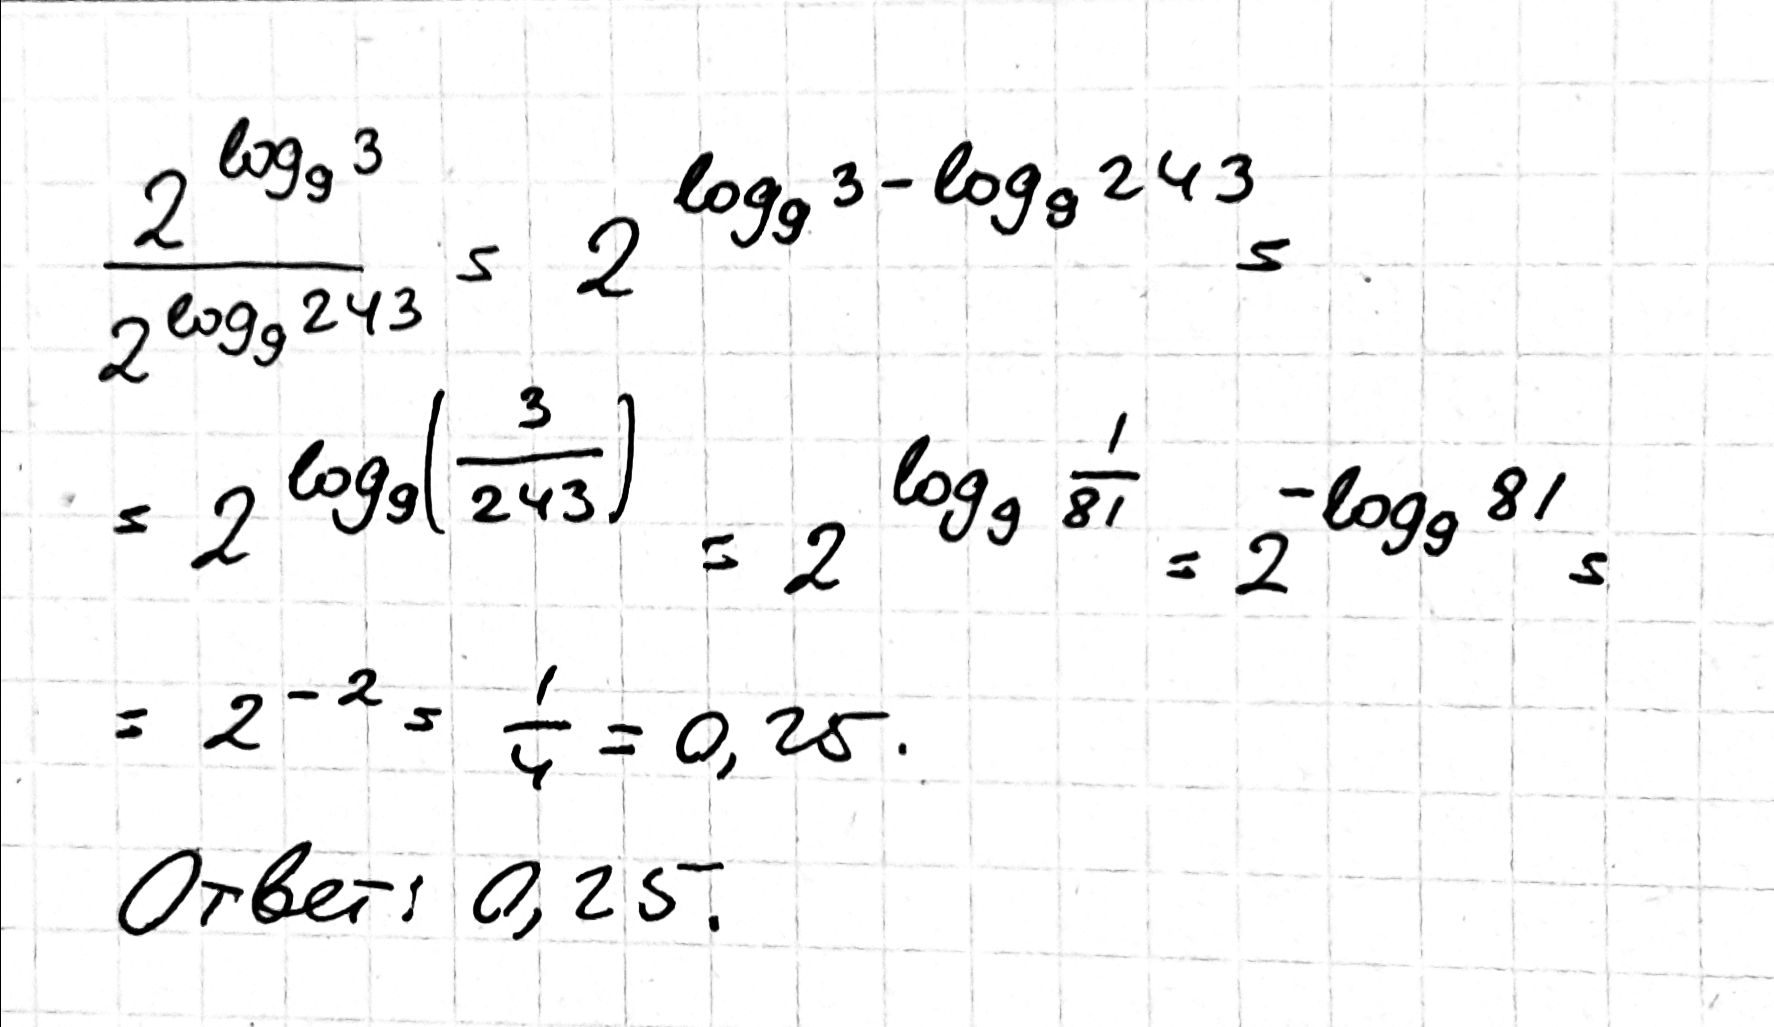 2^{log_9 3} / 2^{log_9 243} = 2^{log_9 3 - log_9 243} =
= 2^{log_9 (3/243)} = 2^{log_9 1/81} = 2^{-log_9 81} =
= 2^{-2} = 1/4 = 0,25.
Ответ: 0,25.